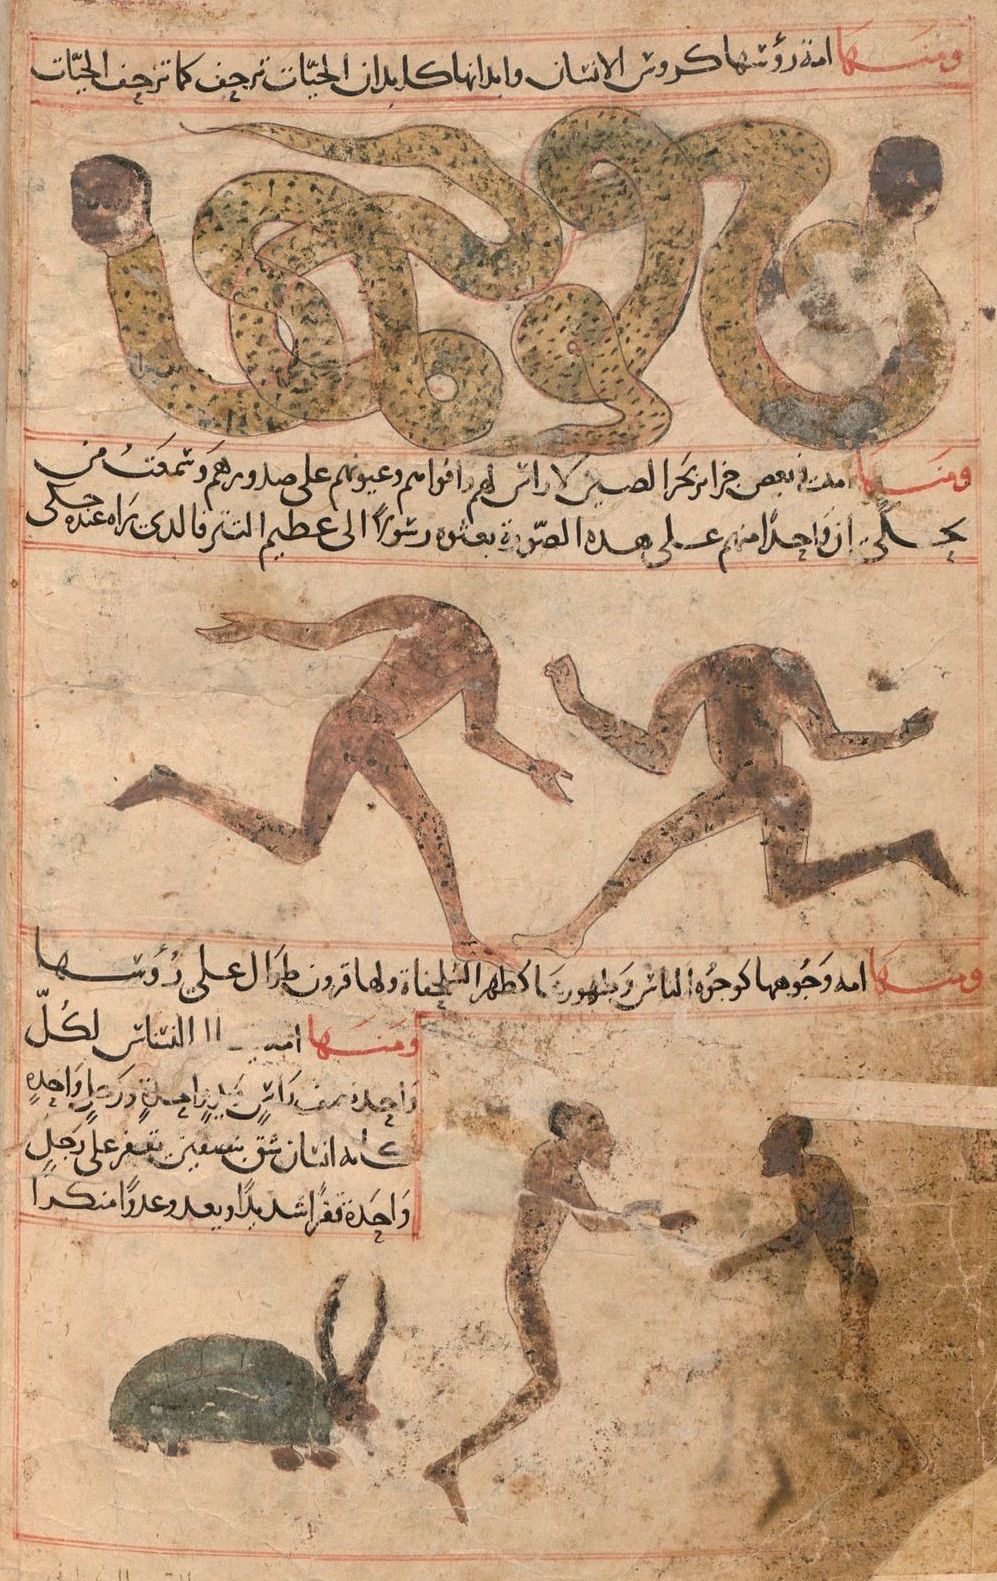 ومنها امة رؤسها كروس الانسان وابدانها كابدان الحيّات تزحف كما تزحف الحيّات
ومنها امة في بعض جزاير بحر الصين لا راس لهم وافواههم وعيونهم على صدورهم وسمعت من
يحكى ان واحدًا منهم على هذه الصورة بعثوه رسولا الى عظيم التتر فالذى يراه عنده حكى
ومنها امه وجوهها كوجوه الناس وظهورها كظهر السلحفاة ولها قرون طوال على رؤسها
ومنها امة النسناس لكلّ
واحدة نصف راسٍ ويدٍ واحدةٍ ورجلٍ واحدةٍ
كانه انسان شق بنصفين تقفز على رجلٍ
واحدة قفزًا شديدًا ويعدو عدوًا منكرًا